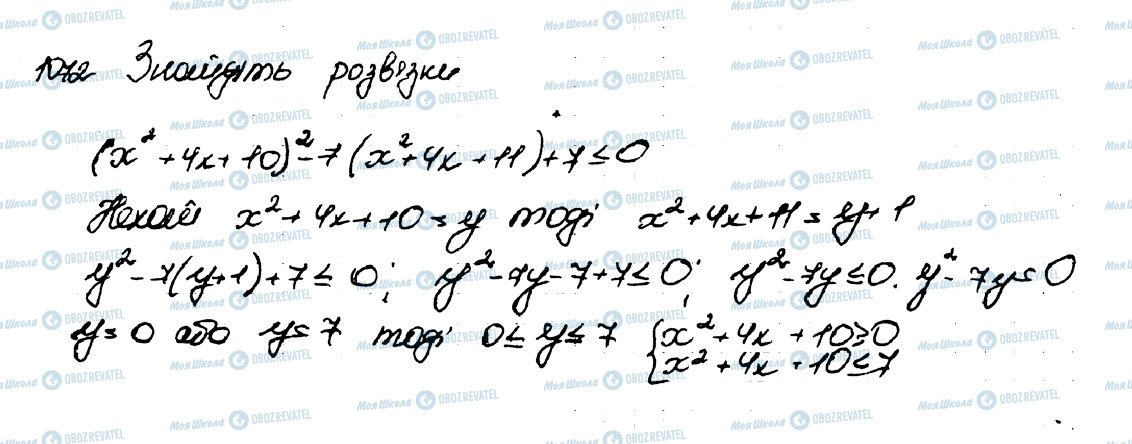 1072 Знайдіть розв'язки
(x² + 4x + 10)² - 7(x² + 4x + 11) + 7 ≤ 0
Нехай x² + 4x + 10 = y тоді x² + 4x + 11 = y + 1
y² - 7(y + 1) + 7 ≤ 0; y² - 7y - 7 + 7 ≤ 0; y² - 7y ≤ 0. y² - 7y = 0
y = 0 або y = 7 тоді 0 ≤ y ≤ 7 { x² + 4x + 10 ≥ 0
x² + 4x + 10 ≤ 7